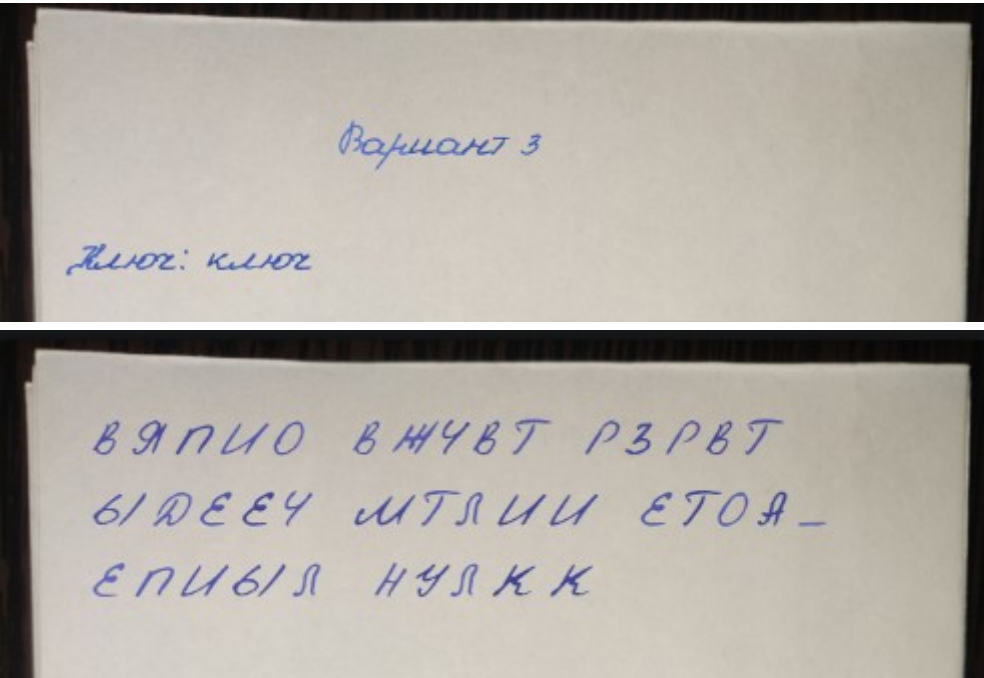 Вариант 3
Ключ: ключ
ВЯПИО ВЖЧВТ РЗРВТ
ЫДЕЕЧ МТЛИИ ЕТОА_
ЕПИЫЛ НУЛКК